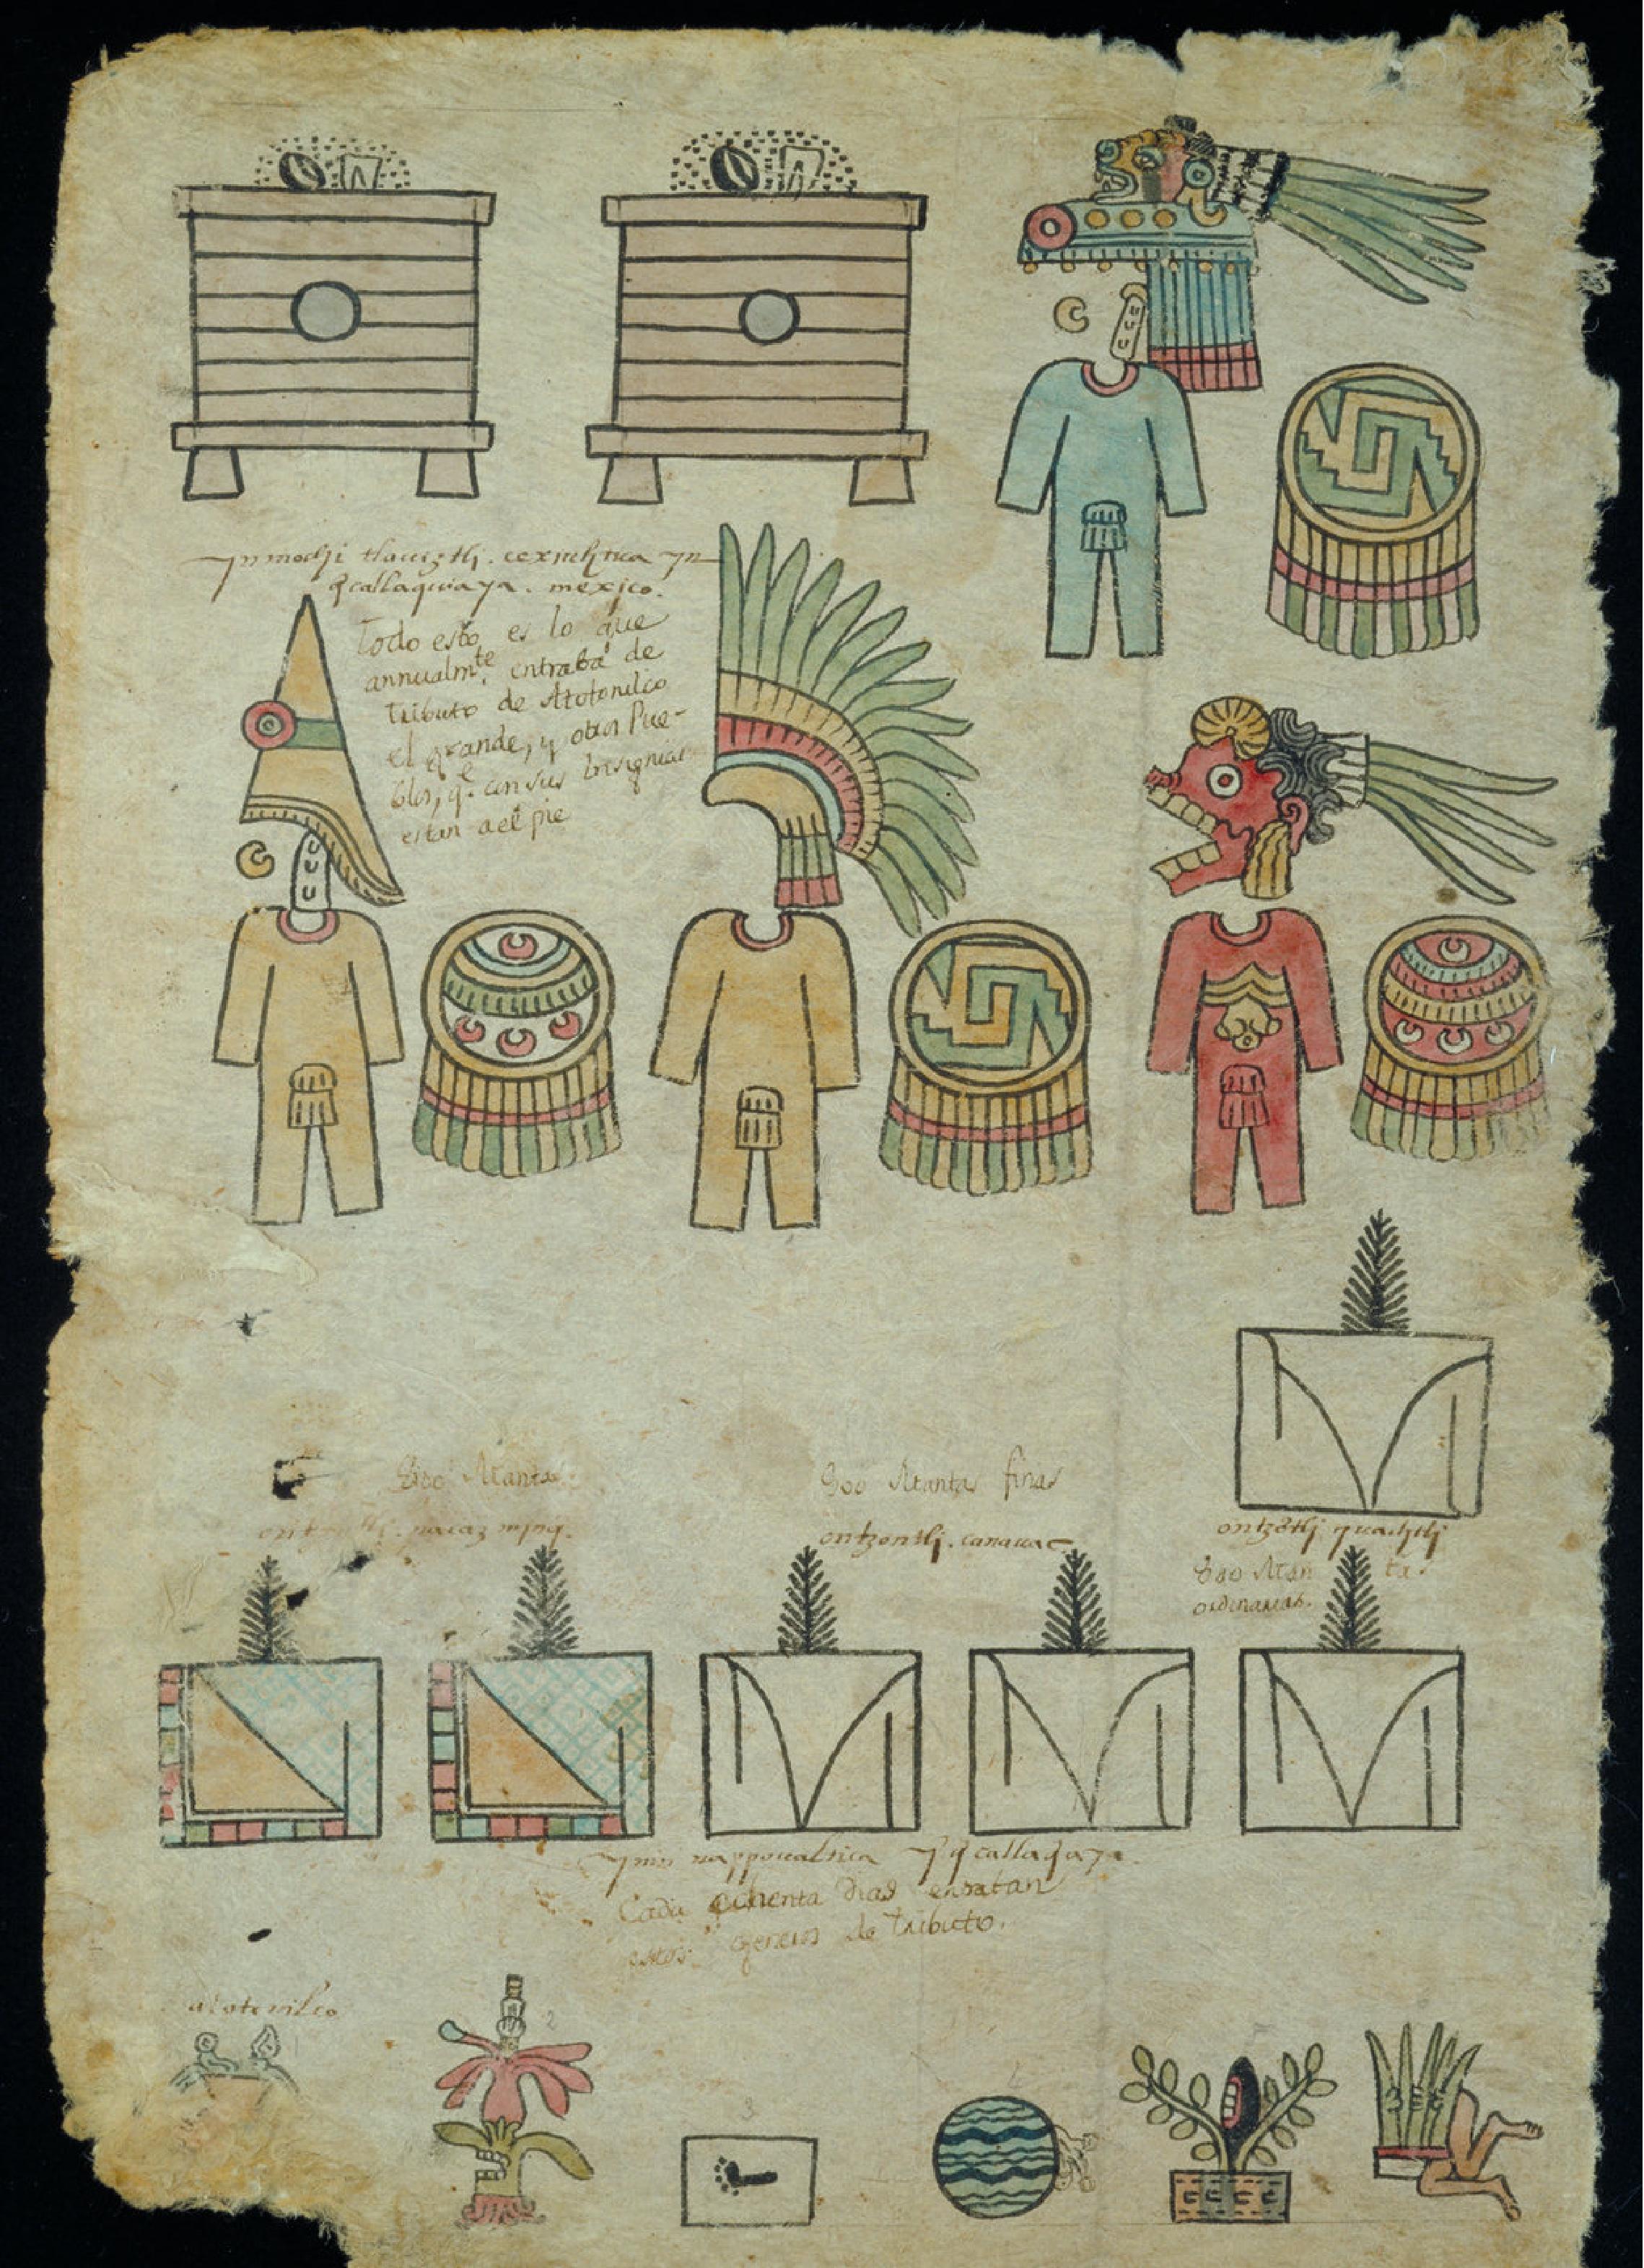 yn mochi tlacuiztli . cexiuhtica yn
qcallaquiaya . mexico .
Todo esto es lo que
annualmte. entraba de
tributo de Atotonilco
el grande, y otros Pue-
blos, qe. con sus Insignias
estan a el pie
800 Mantas
800 Mantas finas
ontzontli . canauac
ontzōtli quachtli
800 Man tas
ordinarias.
ynin nappoualtica y q callaqaya .
Cada ochenta dias entraban
estos generos de tributo.
atotonilco
2
3